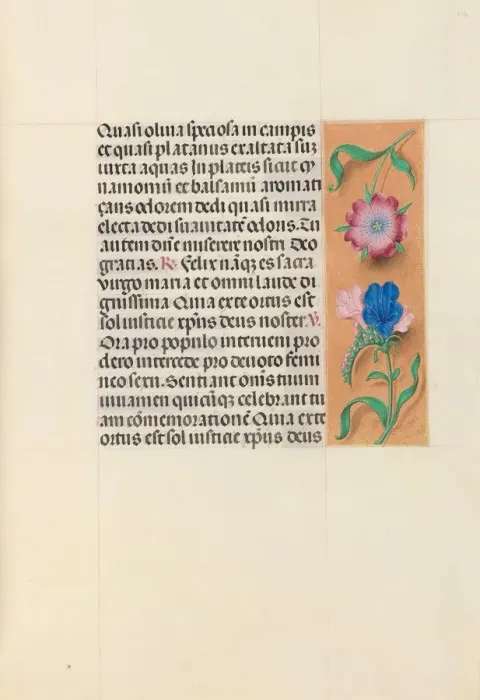 Quasi oliua speciosa in campis
et quasi platanus exaltata suʒ
iuxta aquas In plateis sicut cy
namomū et balsamū aromati
çans odorem dedi quasi mirra
electa dedi suauitatē odoris. Tu
autem dn̄e miserere nostri Deo
gratias. R. Felix nāqꝫ es sacra
virgo maria et omni laude di
gnissima Quia ex te ortus est
sol iusticie xp̄us deus noster. V.
Ora pro populo interueni pro
clero intercede pro deuoto femi
neo sexu. Sentiant om̄s tuum
iuuamen quicūqꝫ celebrant tu
am cōmemorationē Quia ex te
ortus est sol iusticie xp̄us deus